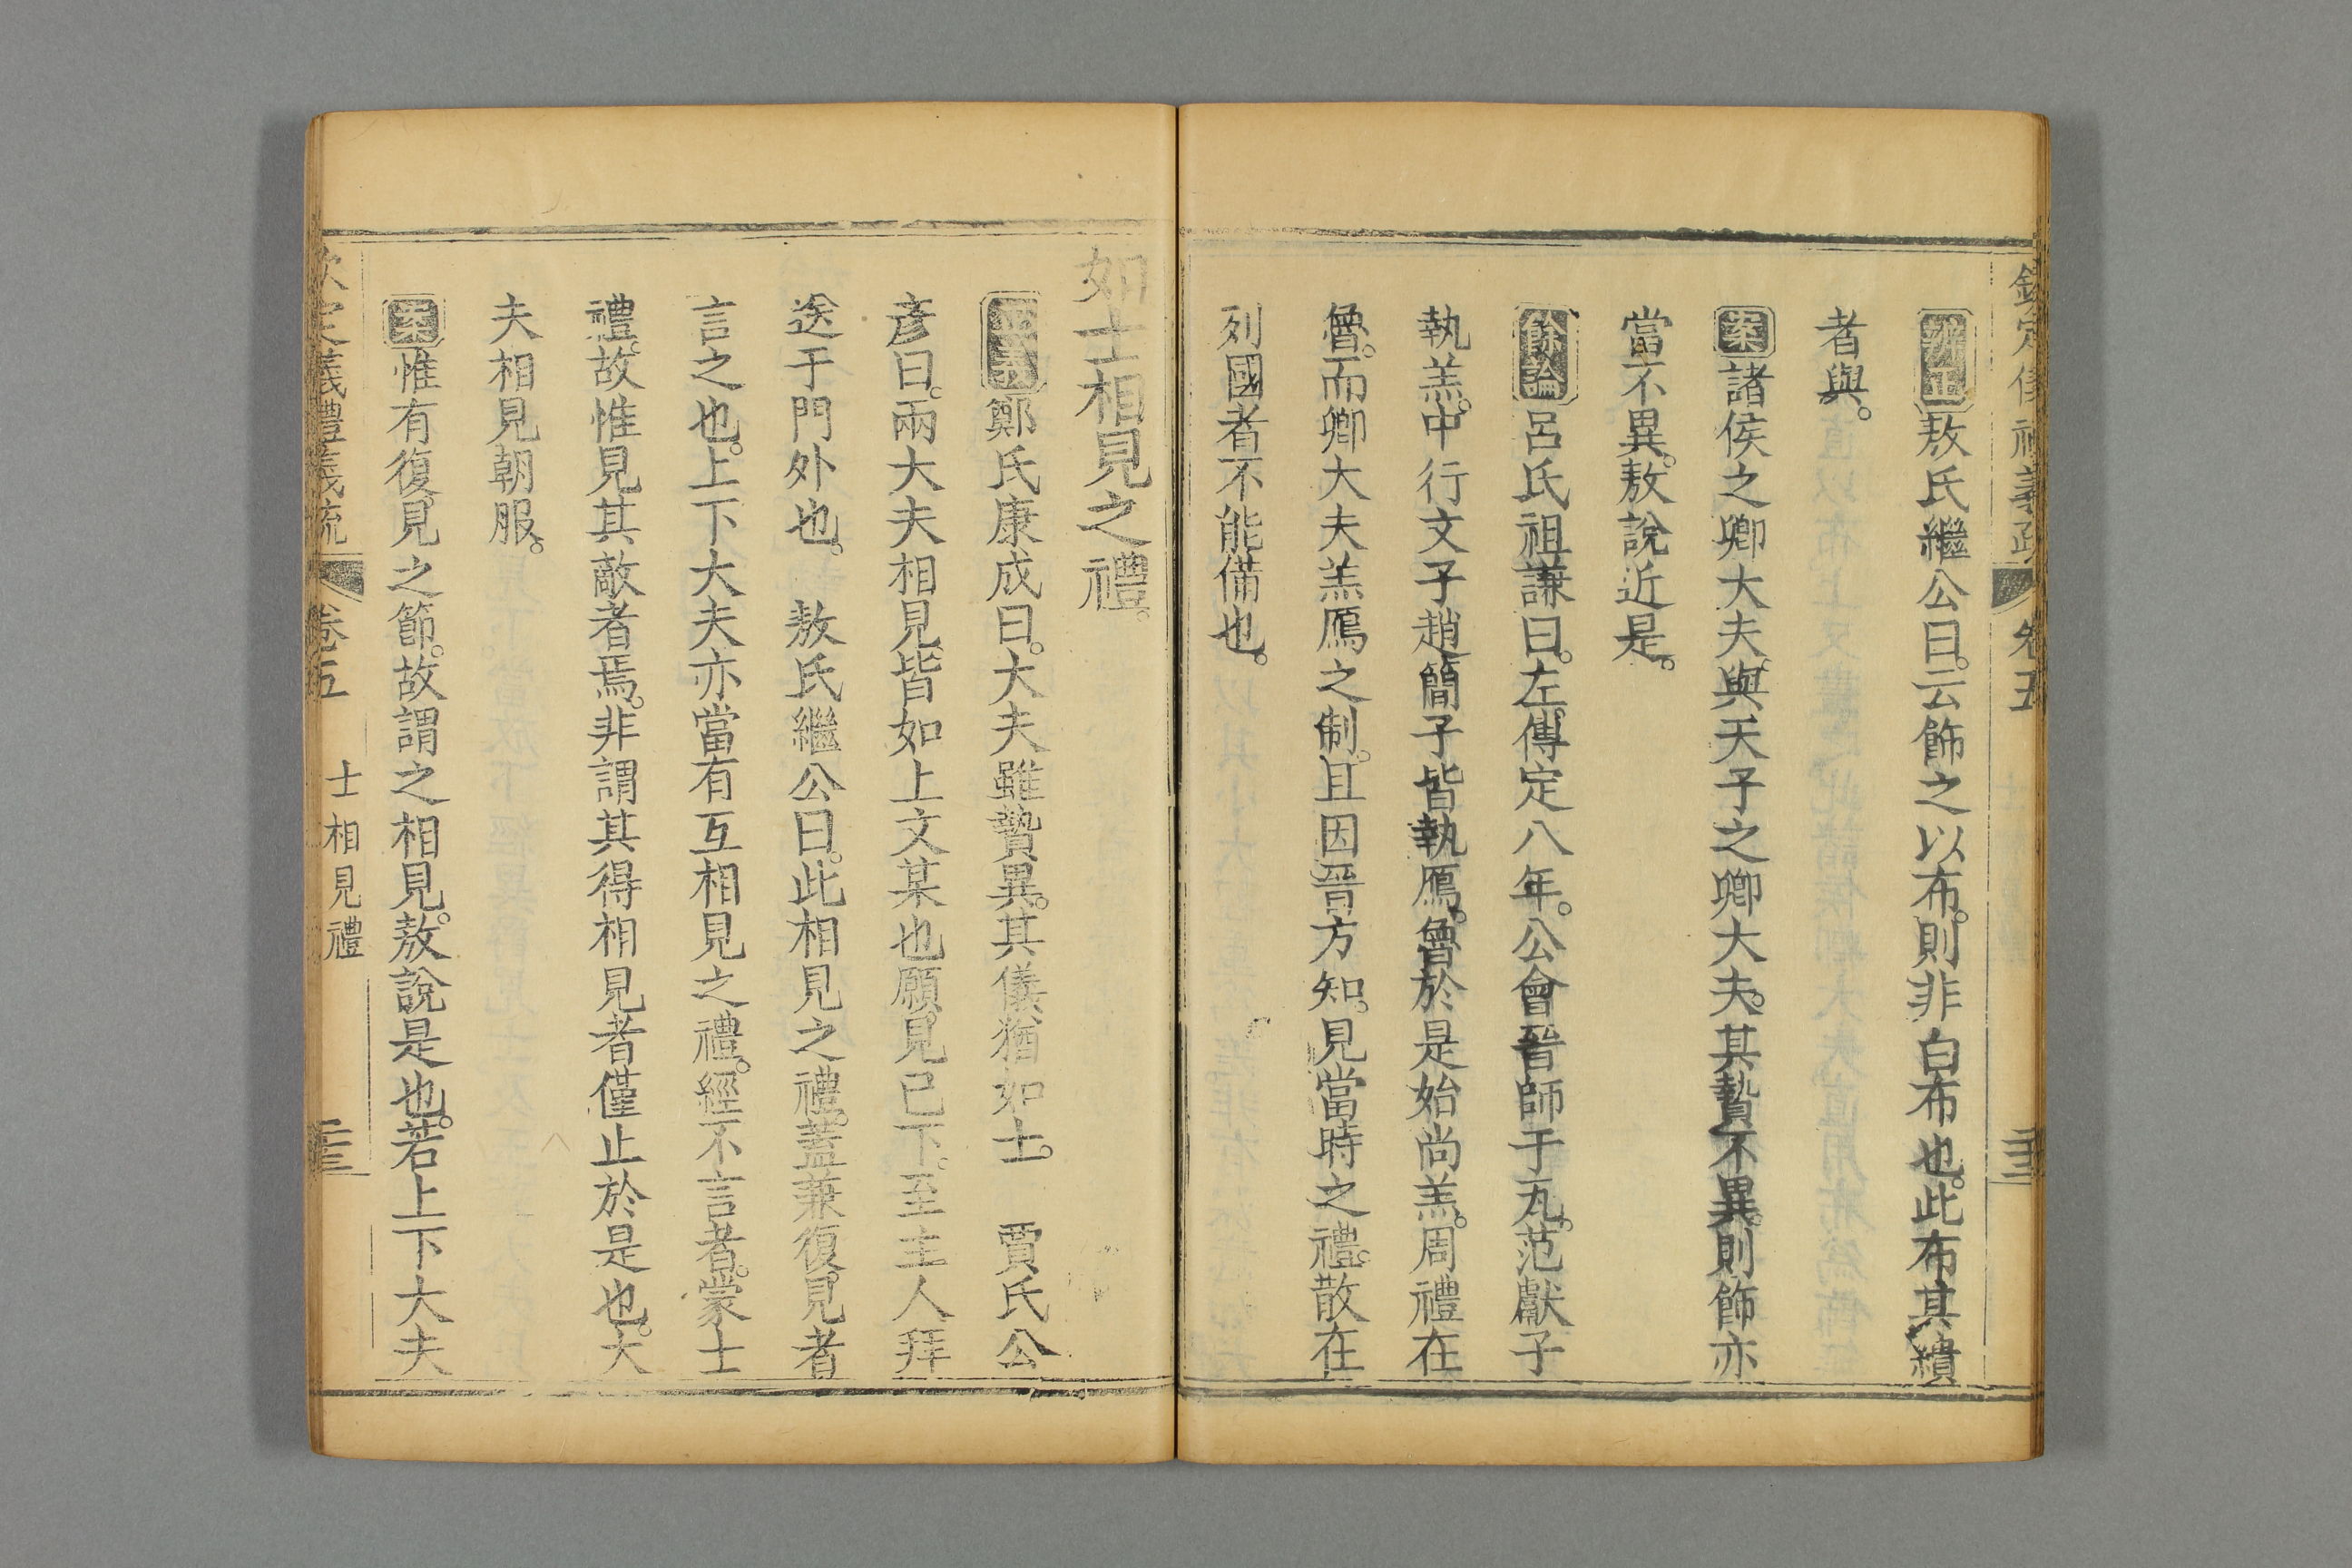 欽定儀禮義疏 卷五
辨正敖氏繼公曰。云飾之以布。則非白布也。此布其繢
者與。
案諸侯之卿大夫。與天子之卿大夫。其贄不異。則飾亦
當不異。敖說近是。
餘論呂氏祖謙曰。左傳定八年。公會晉師于瓦。范獻子
執羔。中行文子趙簡子皆執鴈。魯於是始尚羔。周禮在
魯。而卿大夫羔鴈之制。且因晉方知。見當時之禮。散在
列國者不能備也。
如士相見之禮。
正義鄭氏康成曰。大夫雖贄異。其儀猶如士。 賈氏公
彥曰。兩大夫相見。皆如上文某也願見已下。至主人拜
送于門外也。 敖氏繼公曰。此相見之禮。蓋兼復見者
言之也。上下大夫亦當有互相見之禮。經不言者。蒙士
禮。故惟見其敵者焉。非謂其得相見者僅止於是也。大
夫相見朝服。
案惟有復見之節。故謂之相見。敖說是也。若上下大夫
欽定儀禮義疏 卷五 士相見禮